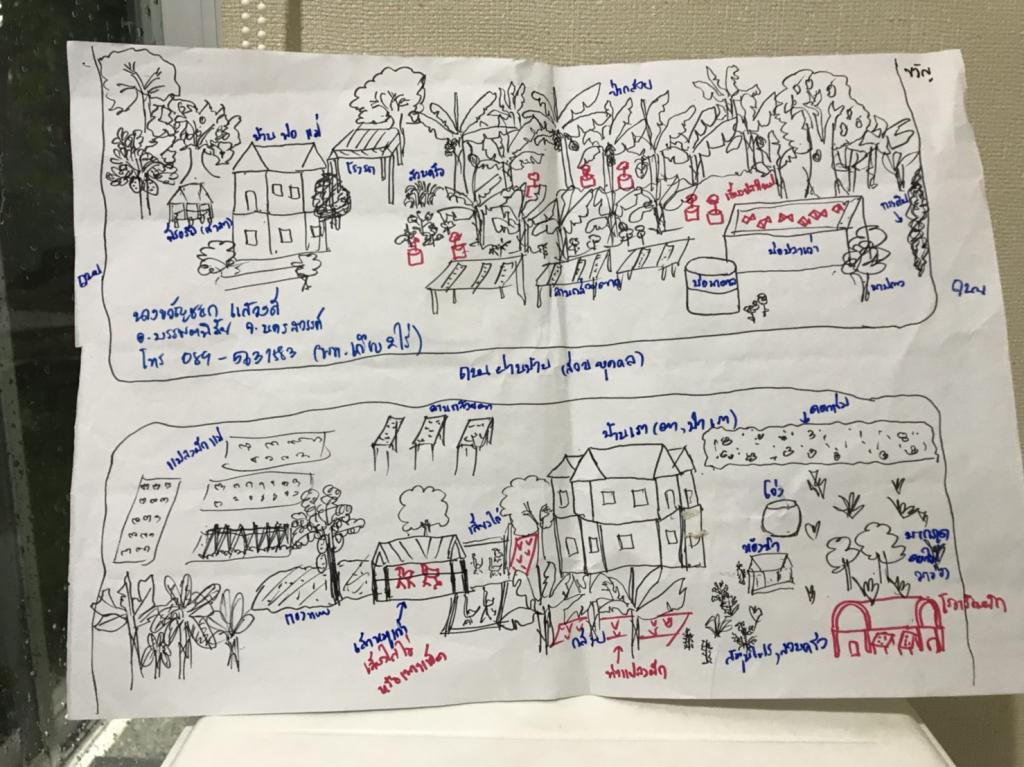 ขวัญ
ป่ากล้วย
บ้าน พ่อ แม่
โรงรถ
สวนครัว
เลี้ยงชันโรง
บ่อปลาเก่า
บ่อบาดาล
ลานกล้วยตาก
ถนน
ถนน
นางขวัญชนก แสวงดี
อ.บรรพตพิสัย จ.นครสวรรค์
โทร 089-5631583 (พท.เกือบ 2 ไร่)
ถนน ผ่านบ้าน (ส่วนบุคคล)
ลานกล้วยตาก
บ้านเรา (ตา, ป้า, เรา)
ดอกไม้
แปลงผักแม่
เลี้ยงไก่
โอ่ง
ห้องน้ำ
มะกรูด
กองแกลบ
เล้าหมูเก่า
เลี้ยงไก่ไข่
หรือเพาะเห็ด
กล้วย
ทำแปลงผัก
สมุนไพร, สวนครัว
โรงเรือนผัก